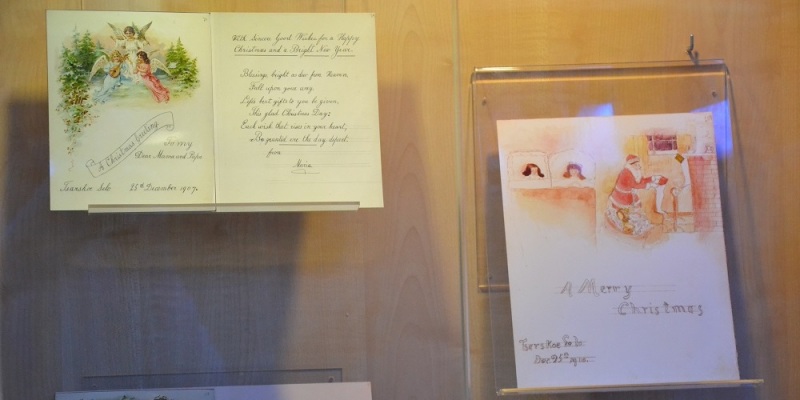 A Christmas Greeting
to my
Dear Mama and Papa
Tsarskoe Selo 25th December 1907.
With Sincere Good Wishes for a Happy
Christmas and a Bright New Year.
Blessings, bright as dew from Heaven,
Fall upon your way
Life's best gifts to you be given,
This glad Christmas Day;
Each wish that rises in your heart,
Be granted ere the day depart.
from
A Merry
Christmas
Tsarskoe Selo
Dec. 25th